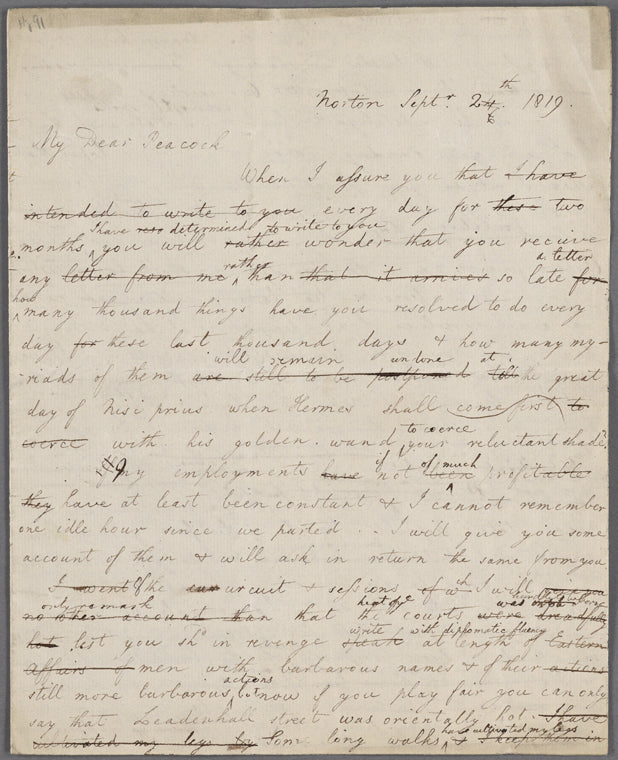 Norton Septr. 24th. 6 1819.
My Dear Peacock
When I assure you that I have
intended to write to you every day for these two
I have determined to write to you
months you will rather wonder that you receive
rather a letter
any letter from me than that it arrives so late for
how
many thousand things have you resolved to do every
day for these last thousand days & how many my-
will remain undone at
riads of them are still to be postponed till the great
day of Nisi prius when Hermes shall come first to
to coerce
coerce with his golden wand your reluctant shade.
if of much
My employments have not been profitable
they have at least been constant & I cannot remember
one idle hour since we parted. I will give you some
account of them & will ask in return the same from you
I went Of the circuit & sessions of wh I will
only remark heat of ye was
no other account than that the courts were dreadfully
write with diplomatic fluency
hot lest you shd in revenge speak at length of Eastern
Affairs of men with barbarous names & of their actions
actions
still more barbarous, but now if you play fair you can only
say that Leadenhall street was orientally hot. I have
have cultivated my legs
cultivated my legs by Some long walks & I keep them in